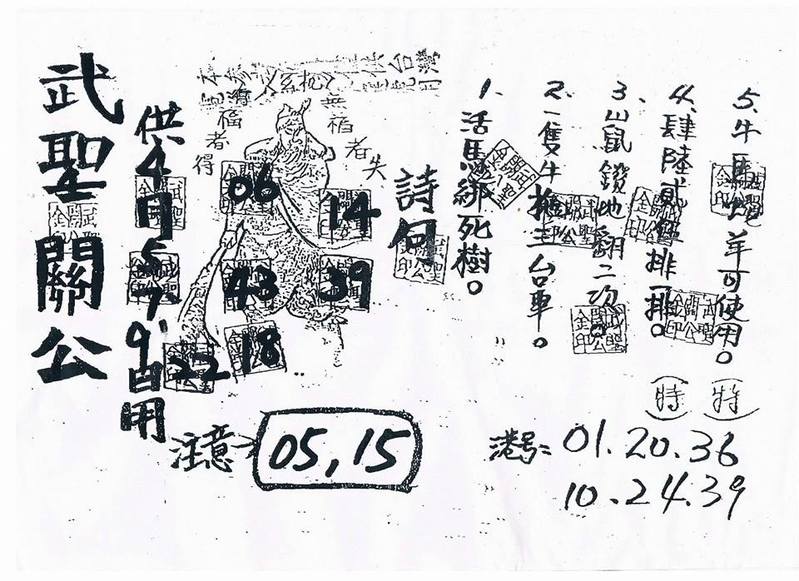 武聖關公
供4月5.7.9日用
無福者失
福者得
06
14
43
39
22
18
詩句
1、活馬綁死樹。
2、一隻牛拖三台車。
3、山鼠鑽地翻二次。
4、肆陸貳組排一排。
5、牛馬雞羊可使用。
注意→
05,15
(特)(特)
港号= 01.20.36
10.24.39